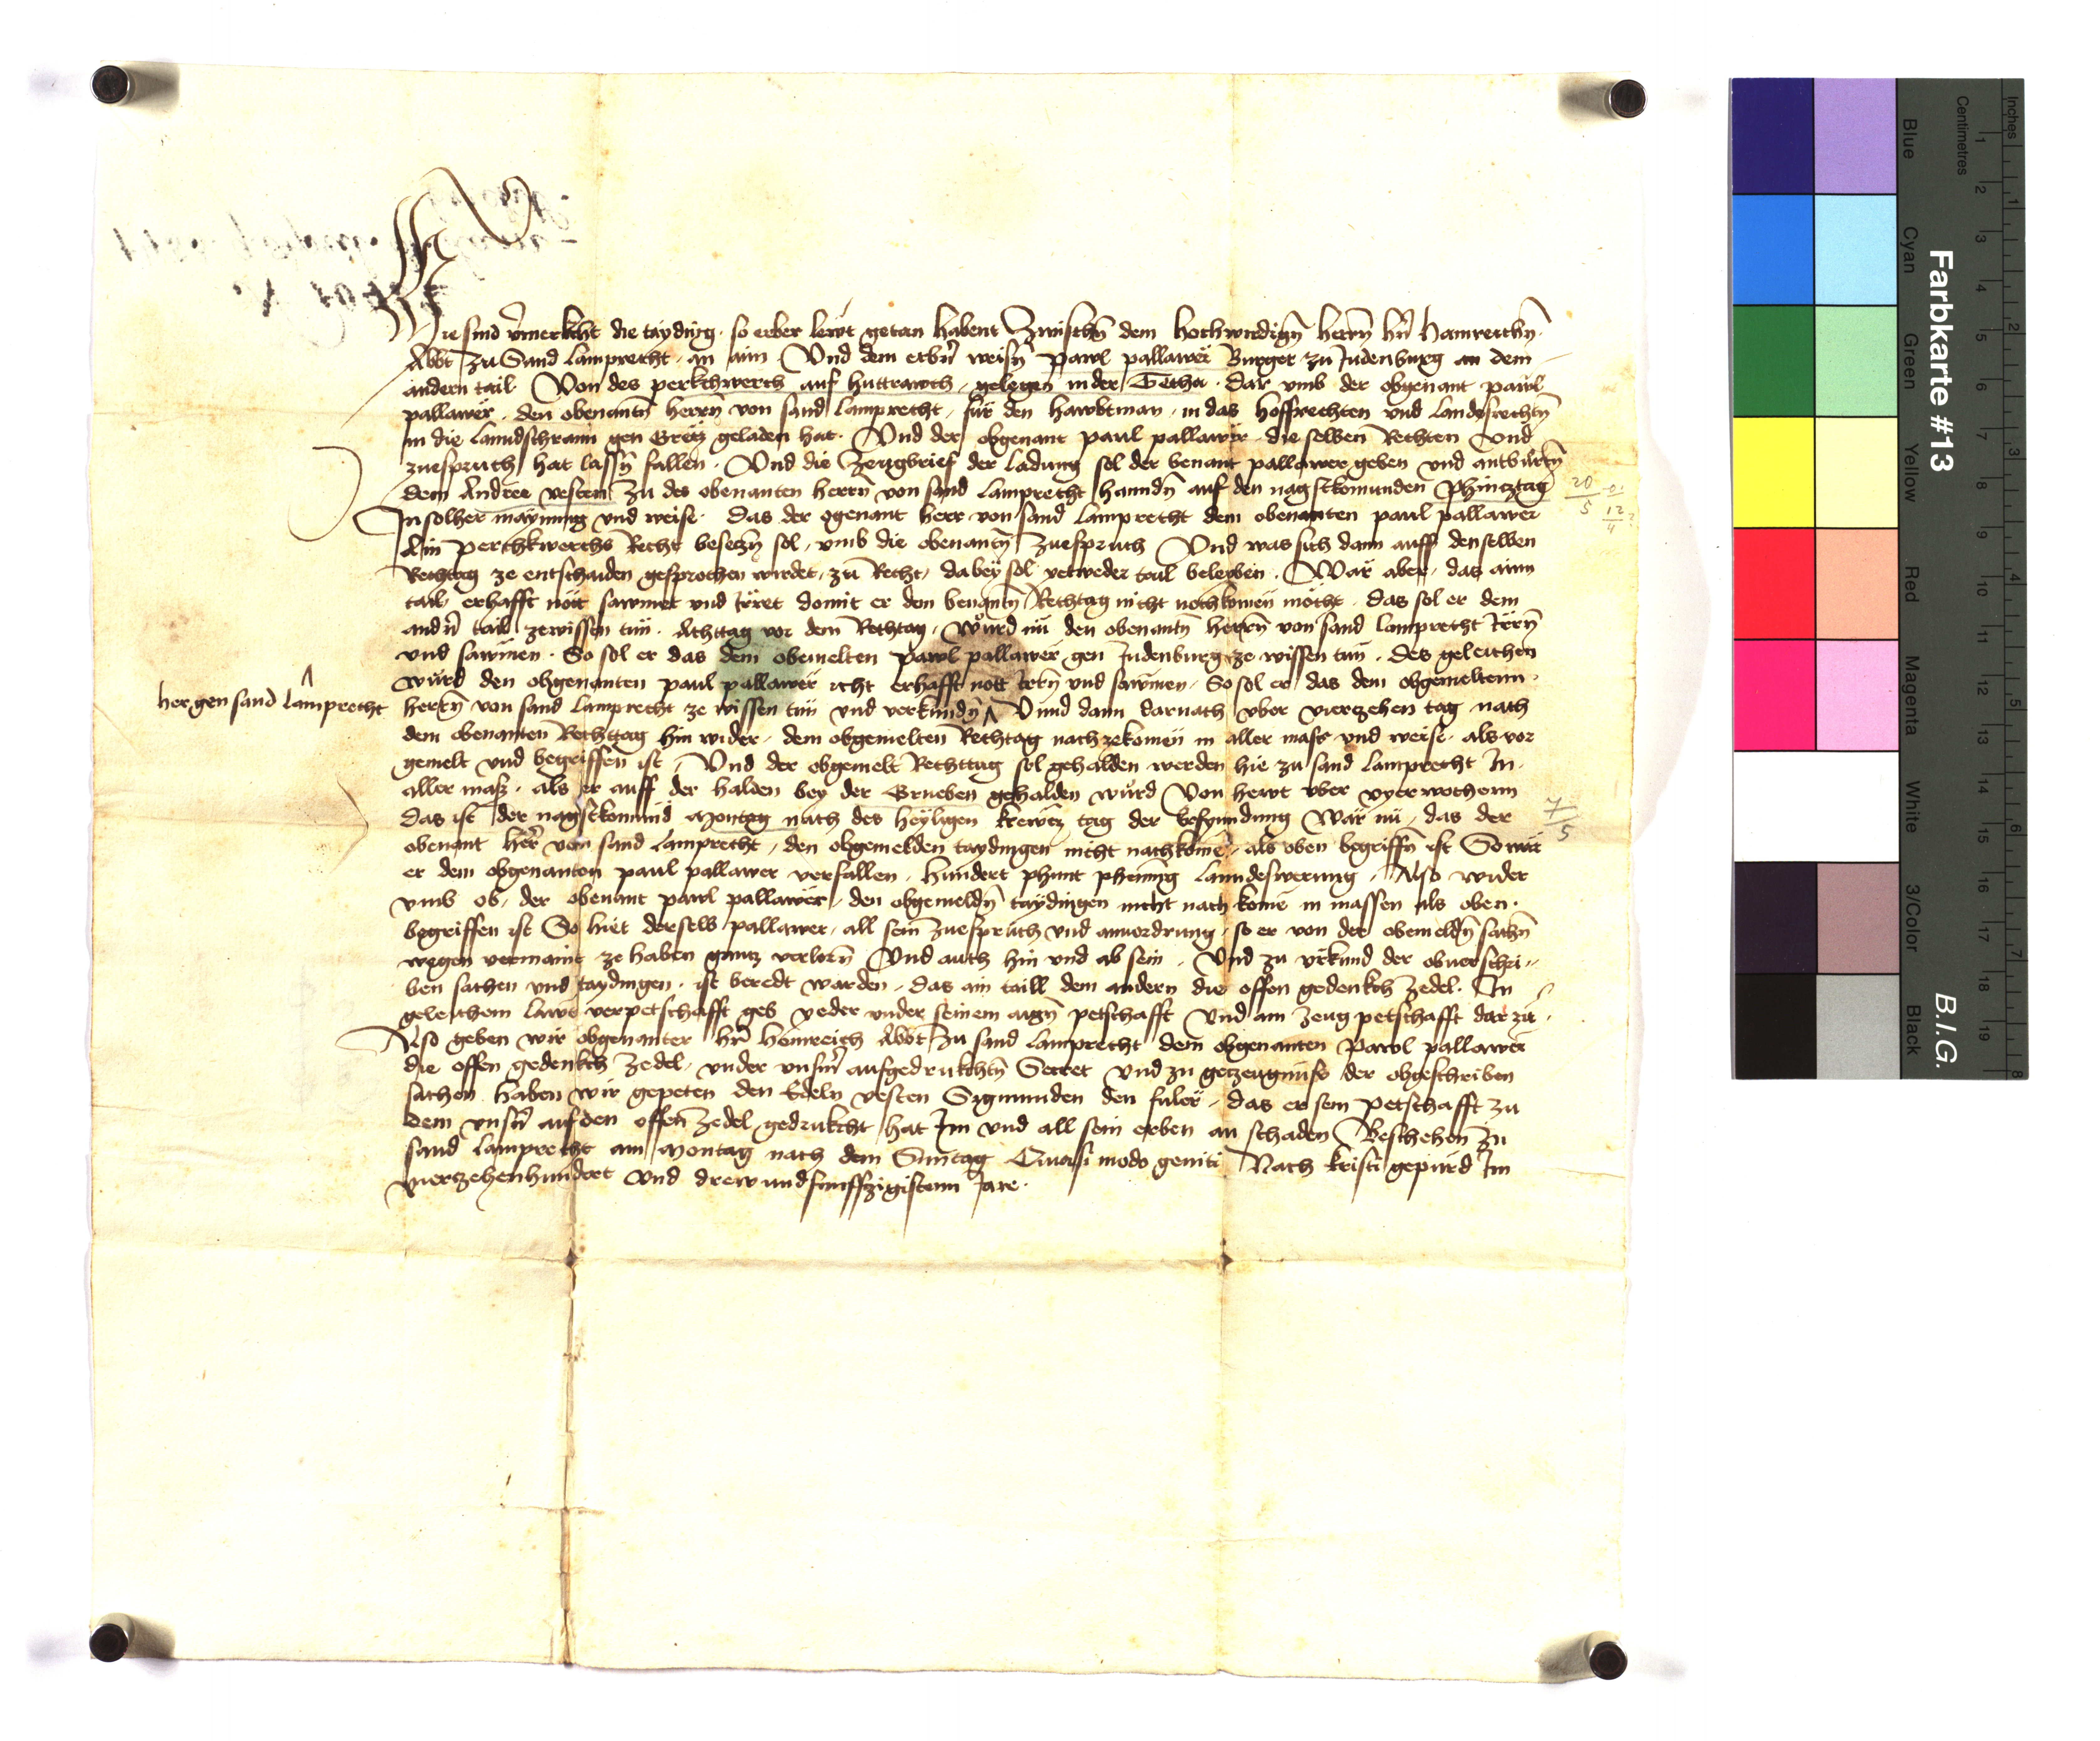 Hie sind vermerkcht die tayding so erber lewt getan habent Zwischn dem hochwirdign herrn hrn Hainreichn
Abbt zu Sand Lamprecht an aim Vnd dem erbrn weisn Pawl pallawer Burger zu Judenburg an dem
andern tail Von des perkchwerch auf huttrawch gelegen in der Dar vmb der obgenant pawl
pallawer den obenantn herrn von sand Lamprecht für den hawbtman in das hoffrechten vnd landsrechtn
in die lanndschrann gen Gretz geladen hat Vnd der obgenant paul pallawer die selben Rechten vnd
zuespruch hat lassn fallen Vnd die Zeugbrief der ladung sol der benant pallawer geben vnd antburtn
dem Andree vesten zu des obenanten herrn von sand Lamprecht hanndn auf den nagstkomunden phincztag
In solher maynung vnd weise das der ogenant herr von sand Lamprecht dem obenanten paul pallawer
Ain perchkwerchs Recht beseczn sol vmb die obenantn zuespruch Vnd was sich dann auff denselben
Rechtag ze entschaiden gesprochen wirdet zu Recht dabey sol yetweder tail beleyben War aber das aim
tail erhafft nött sawmet vnd irret domit er den benantn Rechtag nicht nochkomen möcht das sol er dem
andrn tail zewissen tün Achttag vor dem Rechtag Würd nü den obenantn herrn von sand Lamprecht irrn
vnd sawmen So sol er das dem obemelten pawl pallawer gen Judenburg ze wissen tün des geleichen
würd den obgenanten paul pallawer icht erhafft nott irrn vnd sawmen So sol er das dem obgemeltenn
her gen sand lamprecht
herrn von sand Lamprecht ze wissen tün vnd verkündn Vnnd dann darnach vber vierzehen tag nach
dem obenanten Rechttag hin wider dem obgemelten Rechtag nachzekomen in aller mass vnd weise als vor
gemelt vnd begriffen ist Vnd der obgemelt Rechttag sol gehalden werden hie zu sand Lamprecht In
aller mass als er auff der halden bey der Grueben gehalden würd Von hewt vber vyer wochenn
das ist der nagstkomund Montag nach des heyligen krewtz tag der befynndung Wär nü das der
obenant herr von sand Lamprecht den obgemelden taydingen nicht nachkome als oben begriffn ist So wär
er dem obgenanten paul pallawer verfallen hundert phunt phening lanndeswerung Also wider
vmb ob der obenant pawl pallawer den obgemeldn taydingen nicht nach kome in massen als oben
begriffen ist So hiet derselb pallawer all sein zuespruch vnd anuordrung so er von der obemeldn sachn
wegen vermaint ze haben gantz verlorn Vnd auch hin vnd ab sein Vnd zu vrkund der obuerschri
ben sachen vnd taydingen ist beredt warden das ain taill dem andern die offen gedenkch Zedel In
geleichem lawt verpetschafft geb yeder vnder seinem aign petschafft Vnd ain Zeug petschafft dar zü
Also geben wir obgenanter hr Heinreich Abbt zu sand Lamprecht dem obgenanten Pawl pallawer
die offen gedenkch Zedel vnder vnserm aufgedrukchtn Secret Vnd zu getzeugnüss der obgeschriben
sachen haben wir gepeten den Edeln vesten Sigmunden den das er sein petschafft zu
dem vnsrn auf den offen Zedel gedrukcht hat Im vnd all sein erben an schaden Beschehen zu
sand Lamprecht am Montag nach dem Suntag Quasi modo geniti Nach kristi gepürd Im
vierzehenhundert vnd drewundfunffzigistenn Jare
20/5
12/4
7/5
Farbkarte #13
B.I.G.
Inches
Centimetres
Blue
Cyan
Green
Yellow
Red
Magenta
White
3/Color
Black
1 2 3 4 5 6 7 8 9 10 11 12 13 14 15 16 17 18 19
1 2 3 4 5 6 7 8